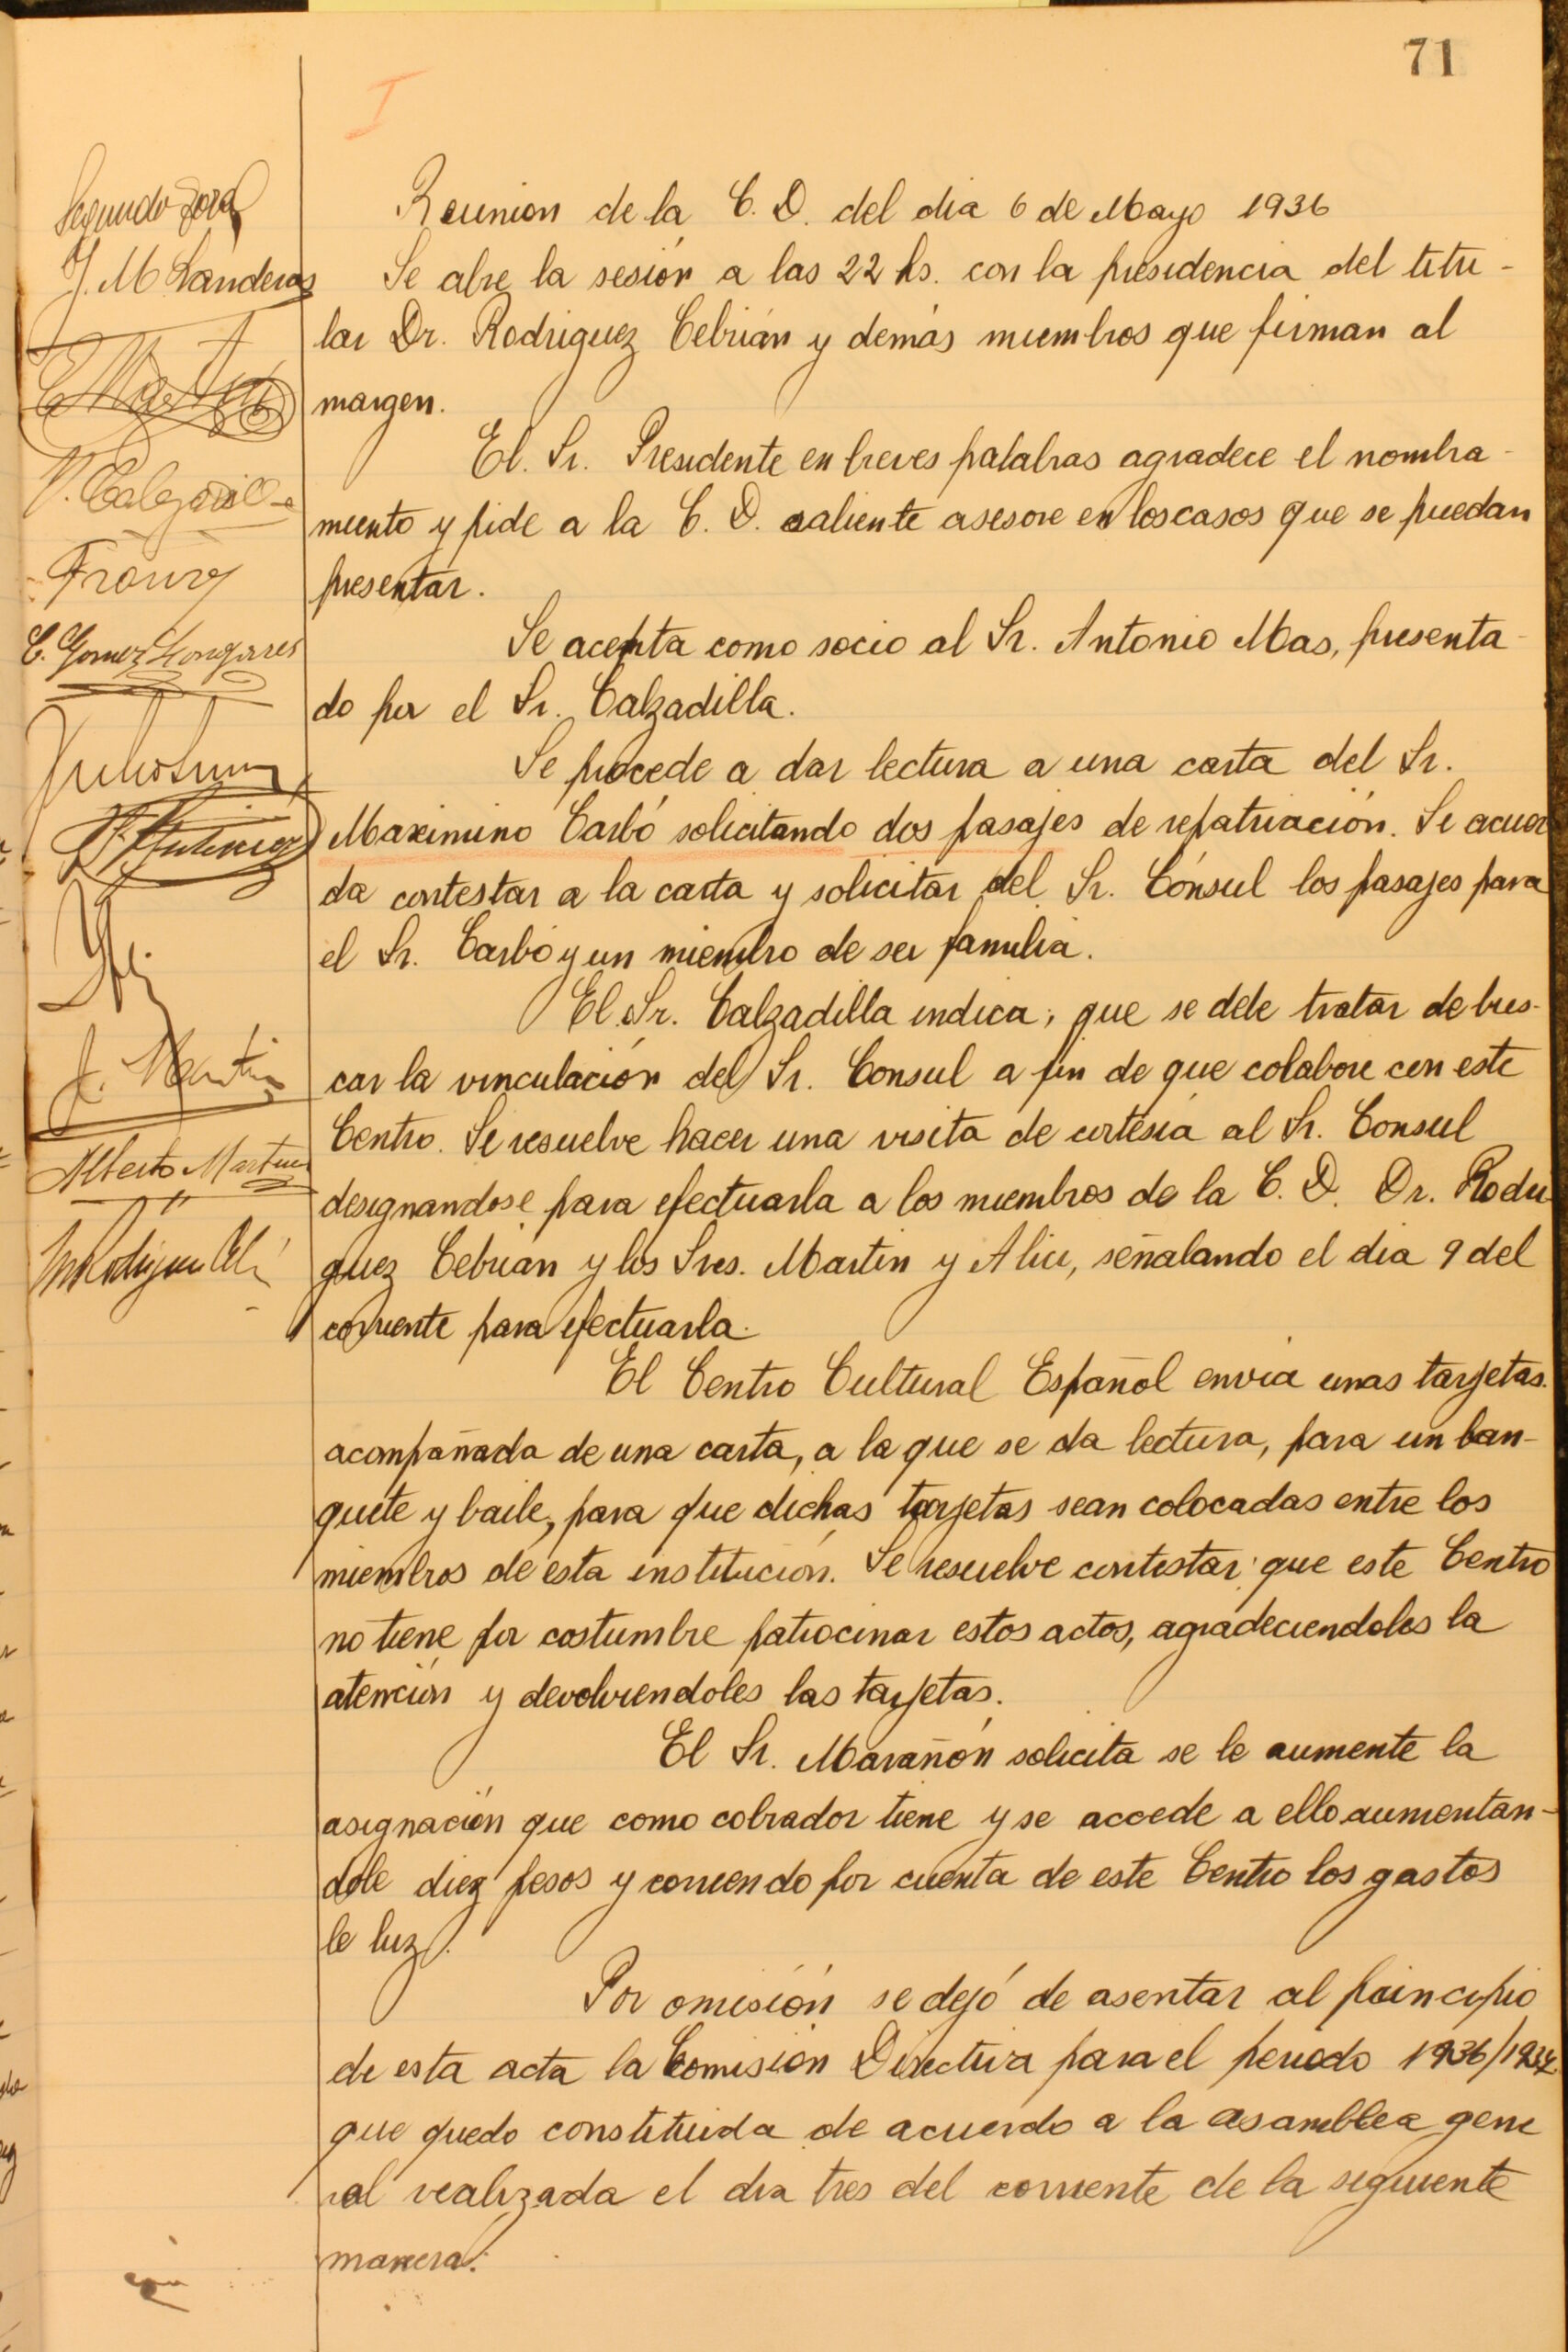 71
I
Segundo
J. M Landeras
E Martin
V. Calzadilla
E. Gomez Longares
J. Martin
Alberto Martinez
Reunion de la C. D. del dia 6 de Mayo 1936
Se abre la sesión a las 22 hs. con la presidencia del titu-
lar Dr. Rodriguez Cebrián y demás miembros que firman al
margen.
El. Sr. Presidente en breves palabras agradece el nombra-
miento y pide a la C. D. saliente asesore en los casos que se puedan
presentar.
Se acepta como socio al Sr. Antonio Mas, presenta-
do por el Sr. Calzadilla.
Se procede a dar lectura a una carta del Sr.
Maximino Carbó solicitando dos pasajes de repatriación. Se acuer
da contestar a la carta y solicitar del Sr. Cónsul los pasajes para
el Sr. Carbó y un miembro de su familia.
El Sr. Calzadilla indica, que se debe tratar de bus-
car la vinculación del Sr. Consul a fin de que colabore con este
Centro. Se resuelve hacer una visita de cortesia al Sr. Consul
designandose para efectuarla a los miembros de la C. D. Dr. Rodri
guez Cebrian y los Sres. Martin y Aliu, señalando el dia 9 del
corriente para efectuarla.
El Centro Cultural Español envia unas tarjetas.
acompañada de una carta, a la que se da lectura, para un ban-
quete y baile, para que dichas tarjetas sean colocadas entre los
miembros de esta institución. Se resuelve contestar que este Centro
no tiene por costumbre patrocinar estos actos, agradeciendoles la
atención y devolviendoles las tarjetas.
El Sr. Marañón solicita se le aumente la
asignación que como cobrador tiene y se accede a ello aumentan-
dole diez pesos y corriendo por cuenta de este Centro los gastos
de luz.
Por omisión se dejó de asentar al principio
de esta acta la Comisión Directiva para el periodo 1936/1937
que quedo constituida de acuerdo a la asamblea gene
ral realizada el dia tres del corriente de la siguiente
manera: